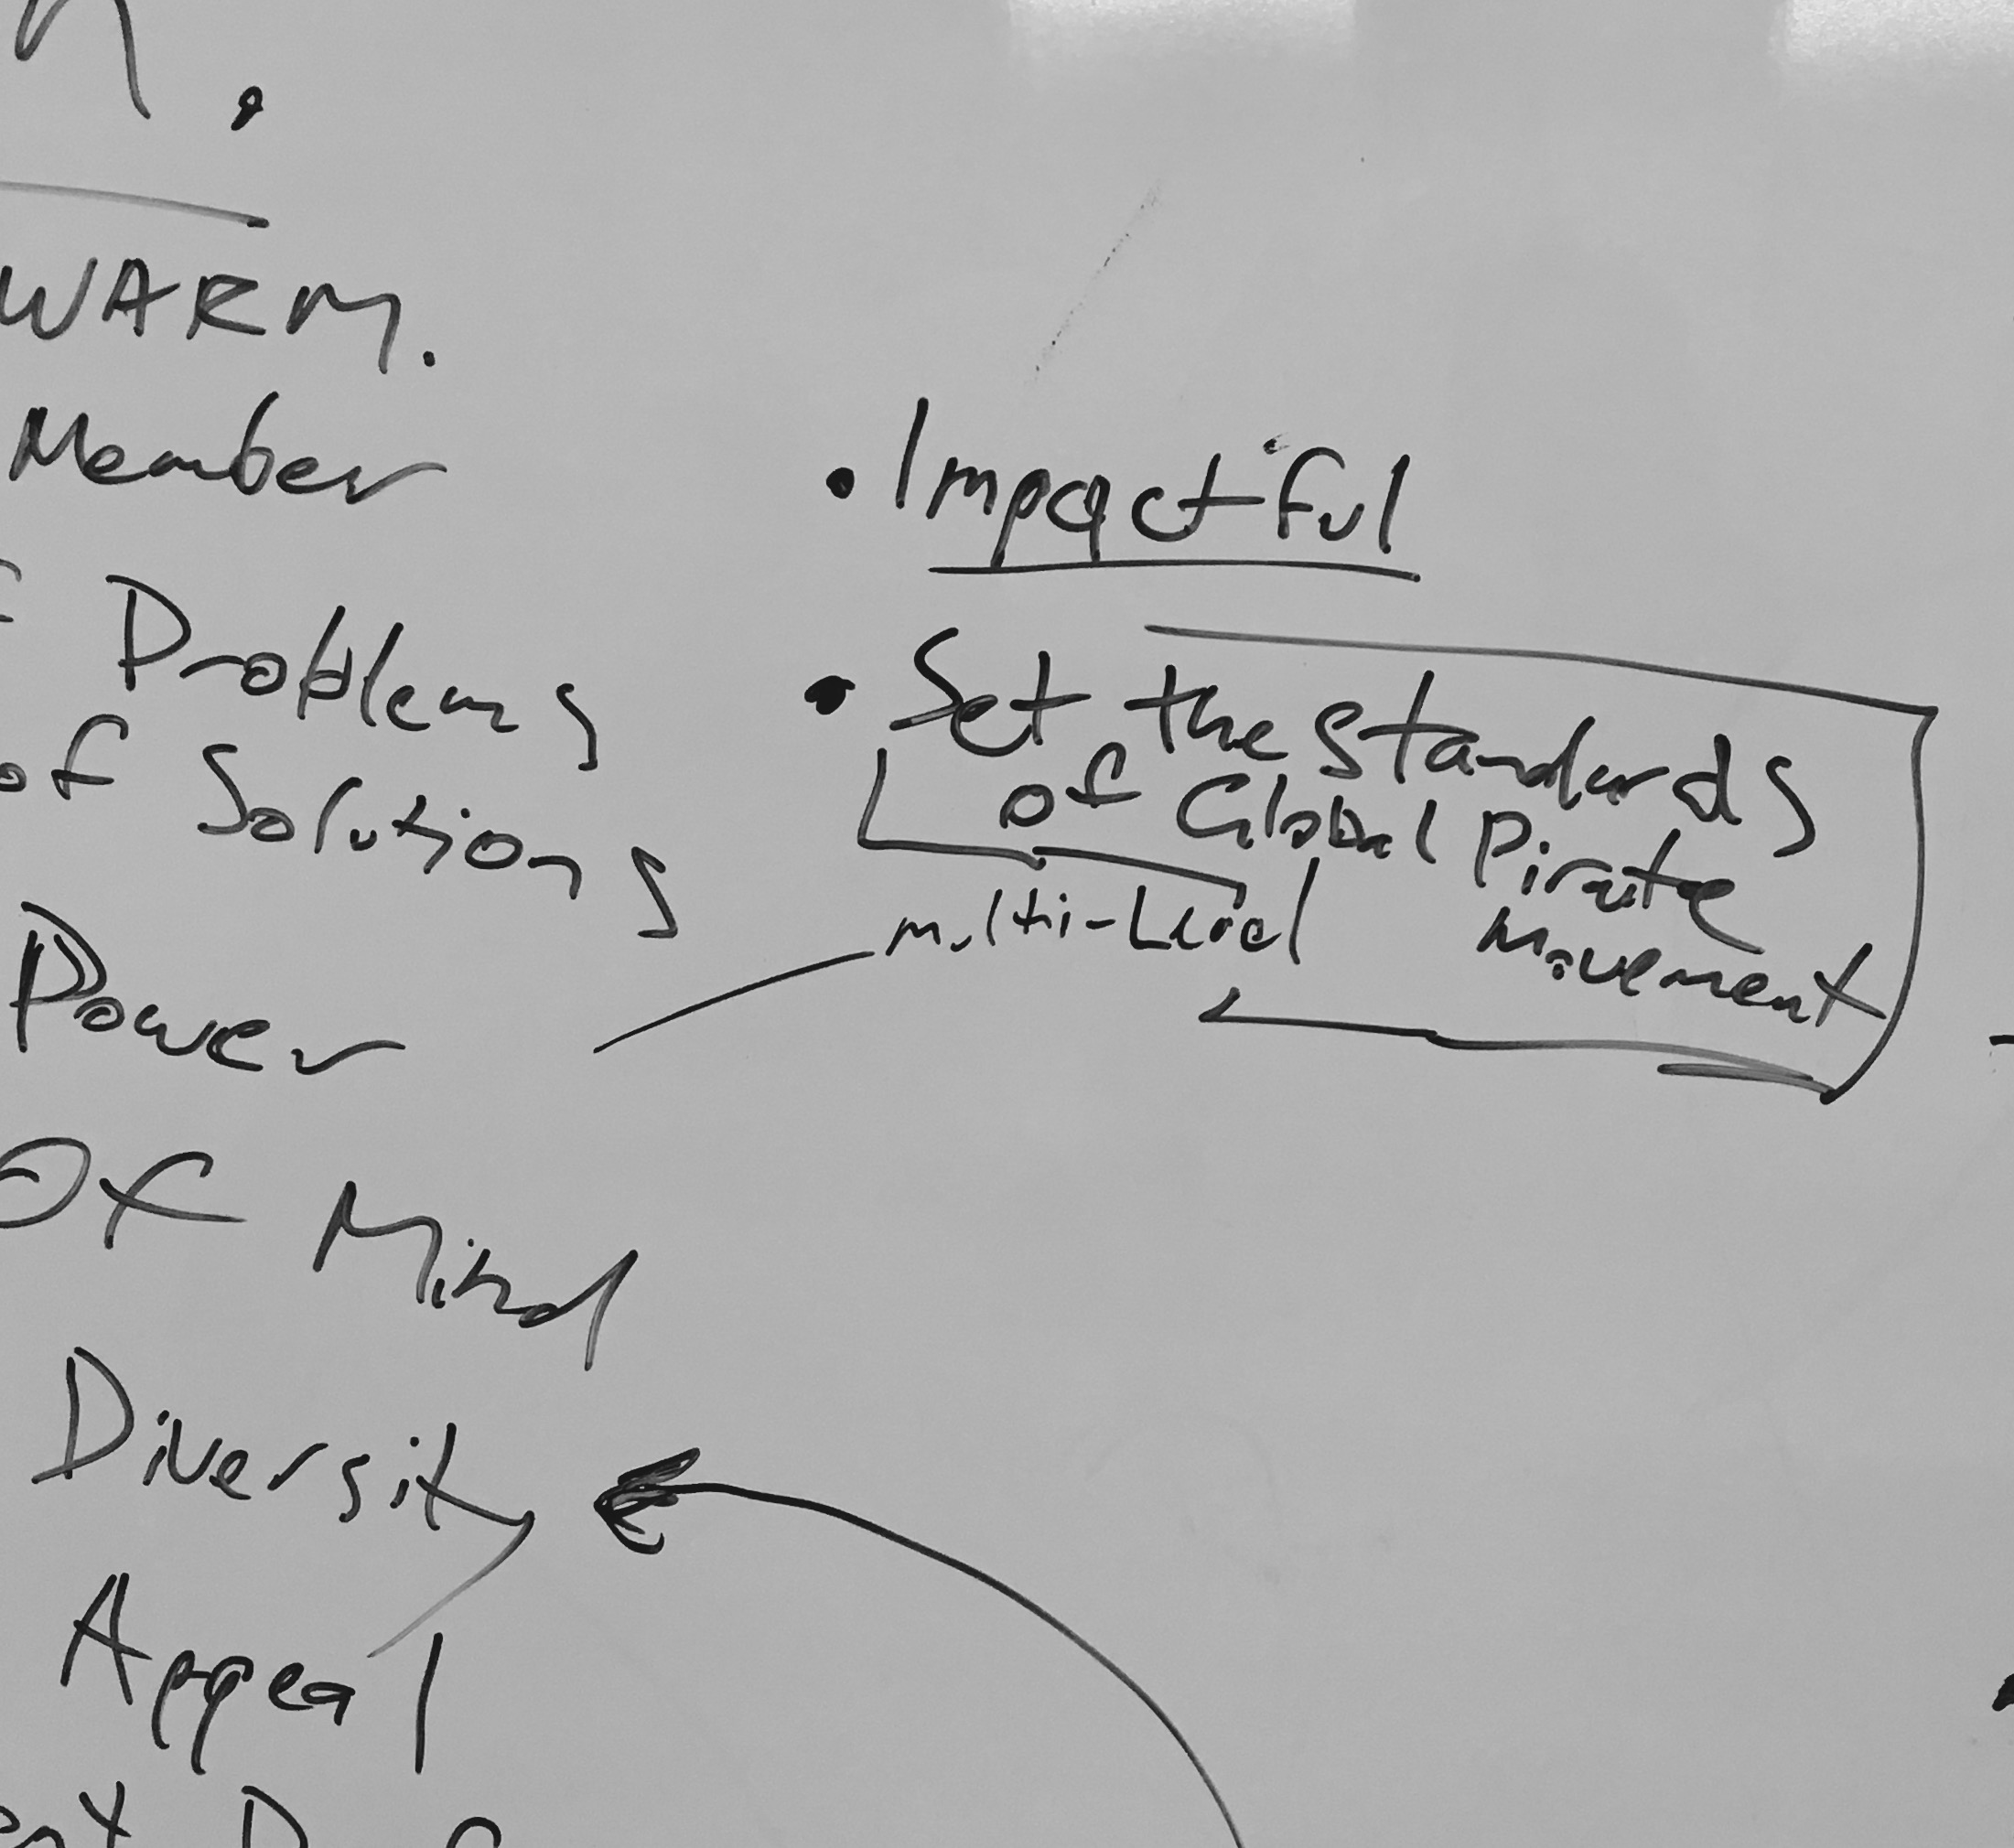 WARM.
Member
Problems
of Solutions
Power
Of Mind
Diversity
Appeal
• Impactful
• Set the Standards
of Global Pirate
Movement
multi-Level